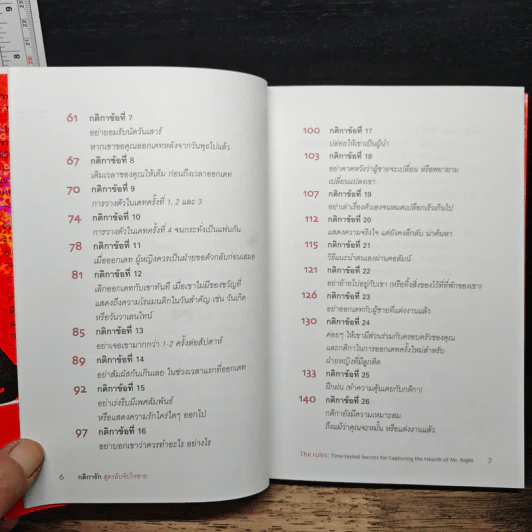 61 กติกาข้อที่ 7
อย่ายอมรับนัดวันเสาร์
หากเขาขอคุณออกเดทหลังจากวันพุธไปแล้ว
67 กติกาข้อที่ 8
เติมเวลาของคุณให้เต็ม ก่อนถึงเวลาออกเดท
70 กติกาข้อที่ 9
การวางตัวในเดทครั้งที่ 1, 2 และ 3
74 กติกาข้อที่ 10
การวางตัวในเดทครั้งที่ 4 จนกระทั่งเป็นแฟนกัน
78 กติกาข้อที่ 11
เมื่อออกเดท ผู้หญิงควรเป็นฝ่ายขอตัวกลับก่อนเสมอ
81 กติกาข้อที่ 12
เลิกออกเดทกับเขาทันที เมื่อเขาไม่มีของขวัญที่
แสดงถึงความโรแมนติกในวันสำคัญ เช่น วันเกิด
หรือวันวาเลนไทน์
85 กติกาข้อที่ 13
อย่าเจอเขามากกว่า 1-2 ครั้งต่อสัปดาห์
89 กติกาข้อที่ 14
อย่าสัมผัสกันเกินเลย ในช่วงเวลาแรกที่ออกเดท
92 กติกาข้อที่ 15
อย่าเร่งรีบมีเพศสัมพันธ์
หรือแสดงความรักใคร่ใดๆ ออกไป
97 กติกาข้อที่ 16
อย่าบอกเขาว่าควรทำอะไร อย่างไร
6 กติการัก สูตรลับจับใจชาย
100 กติกาข้อที่ 17
ปล่อยให้เขาเป็นผู้นำ
103 กติกาข้อที่ 18
อย่าคาดหวังว่าผู้ชายจะเปลี่ยน หรือพยายาม
เปลี่ยนแปลงเขา
107 กติกาข้อที่ 19
อย่าเล่าเรื่องตัวเองจนหมดเปลือกเร็วเกินไป
112 กติกาข้อที่ 20
แสดงความจริงใจ แต่ยังคงลึกลับ น่าค้นหา
115 กติกาข้อที่ 21
วิธีแนะนำตนเองผ่านคอลัมน์
121 กติกาข้อที่ 22
อย่าย้ายไปอยู่กับเขา (หรือทิ้งสิ่งของไว้ที่ที่พักของเขา)
126 กติกาข้อที่ 23
อย่าออกเดทกับผู้ชายที่แต่งงานแล้ว
130 กติกาข้อที่ 24
ค่อยๆ ให้เขามีส่วนร่วมกับครอบครัวของคุณ
และกติกาในการออกเดทครั้งใหม่สำหรับ
ฝ่ายหญิงที่มีลูกติด
133 กติกาข้อที่ 25
ฝึกฝน (ทำความคุ้นเคยกับกติกา)
140 กติกาข้อที่ 26
กติกายังมีความเหมาะสม
ถึงแม้ว่าคุณจะหมั้น หรือแต่งงานแล้ว
The rules: Time-tested Secrets for Capturing the Hearth of Mr. Right 7